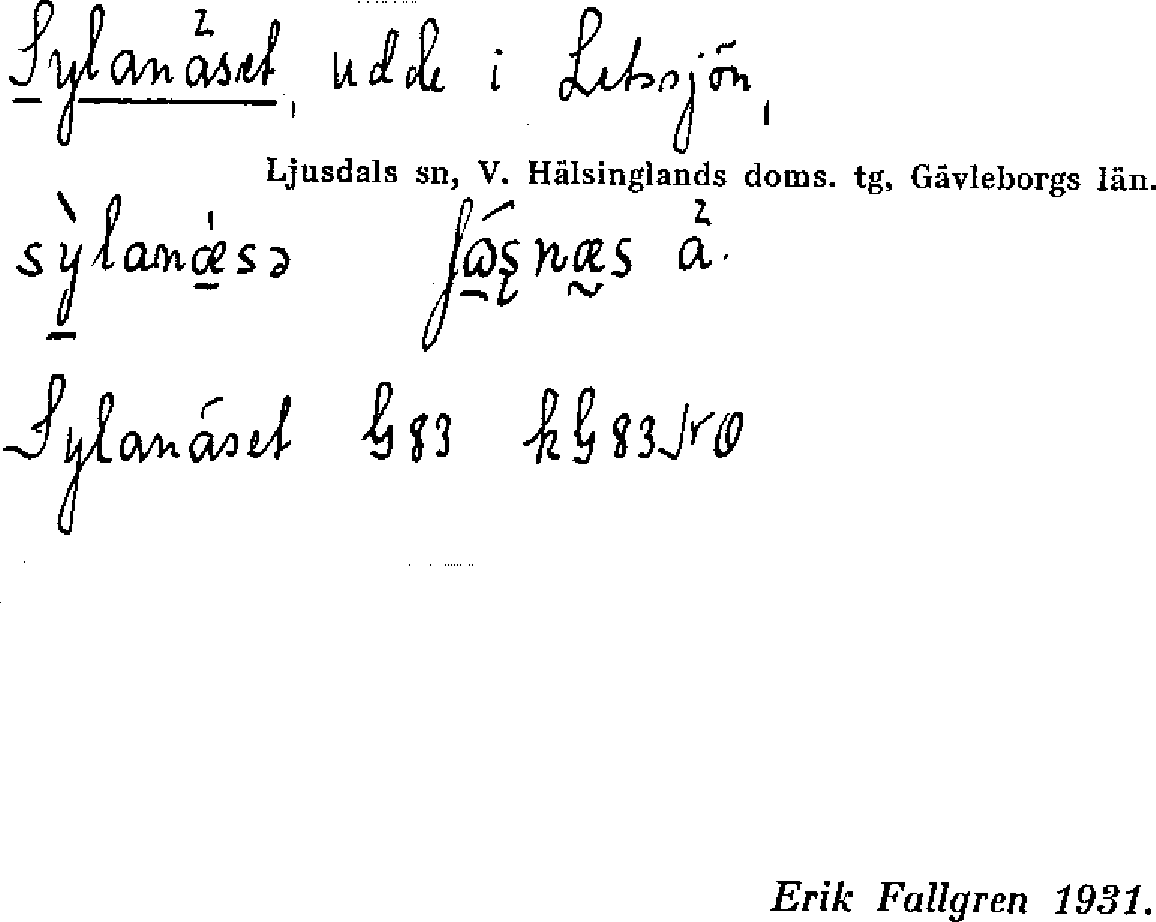 Sylanäset, udde i Letssjön,
Ljusdals sn, V. Hälsinglands doms. tg, Gävleborgs län.
sỳlanǽsə
Sylanäset G 83 kG 83
Erik Fallgren 1931.